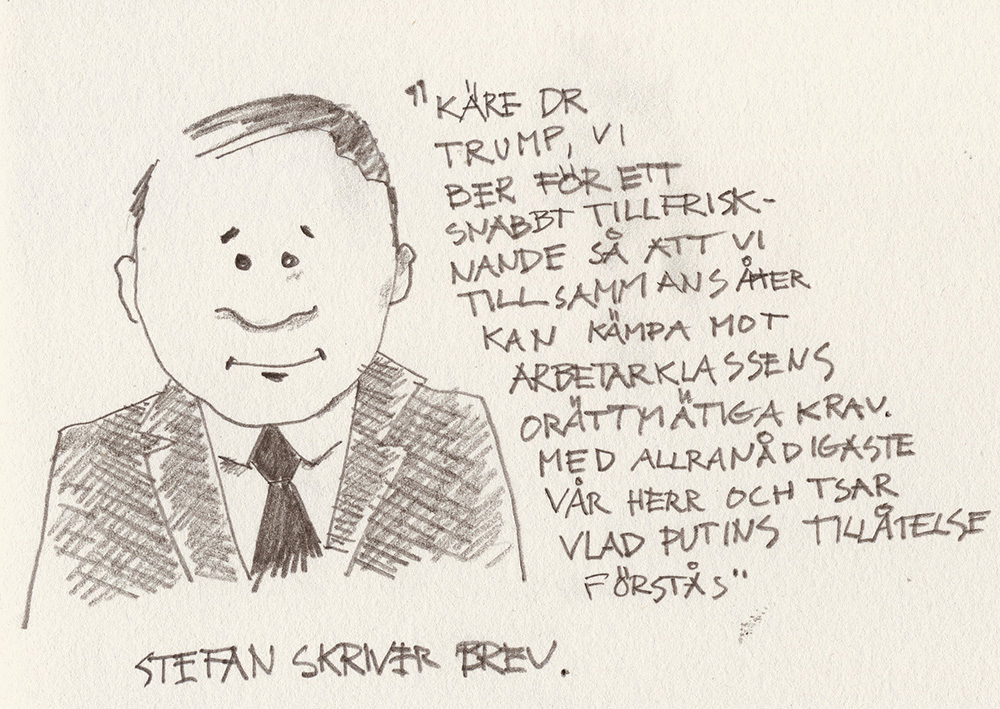 "KÄRE DR
TRUMP, VI
BER FÖR ETT
SNABBT TILLFRISK-
NANDE SÅ ATT VI
TILLSAMMANS ÅTER
KAN KÄMPA MOT
ARBETARKLASSENS
ORÄTTMÄTIGA KRAV.
MED ALLRANÅDIGASTE
VÅR HERR OCH TSAR
VLAD PUTINS TILLÅTELSE
FÖRSTÅS"
STEFAN SKRIVER BREV.